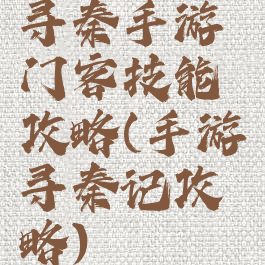 寻秦手游
门客技能
攻略(手游
寻秦记攻
略)